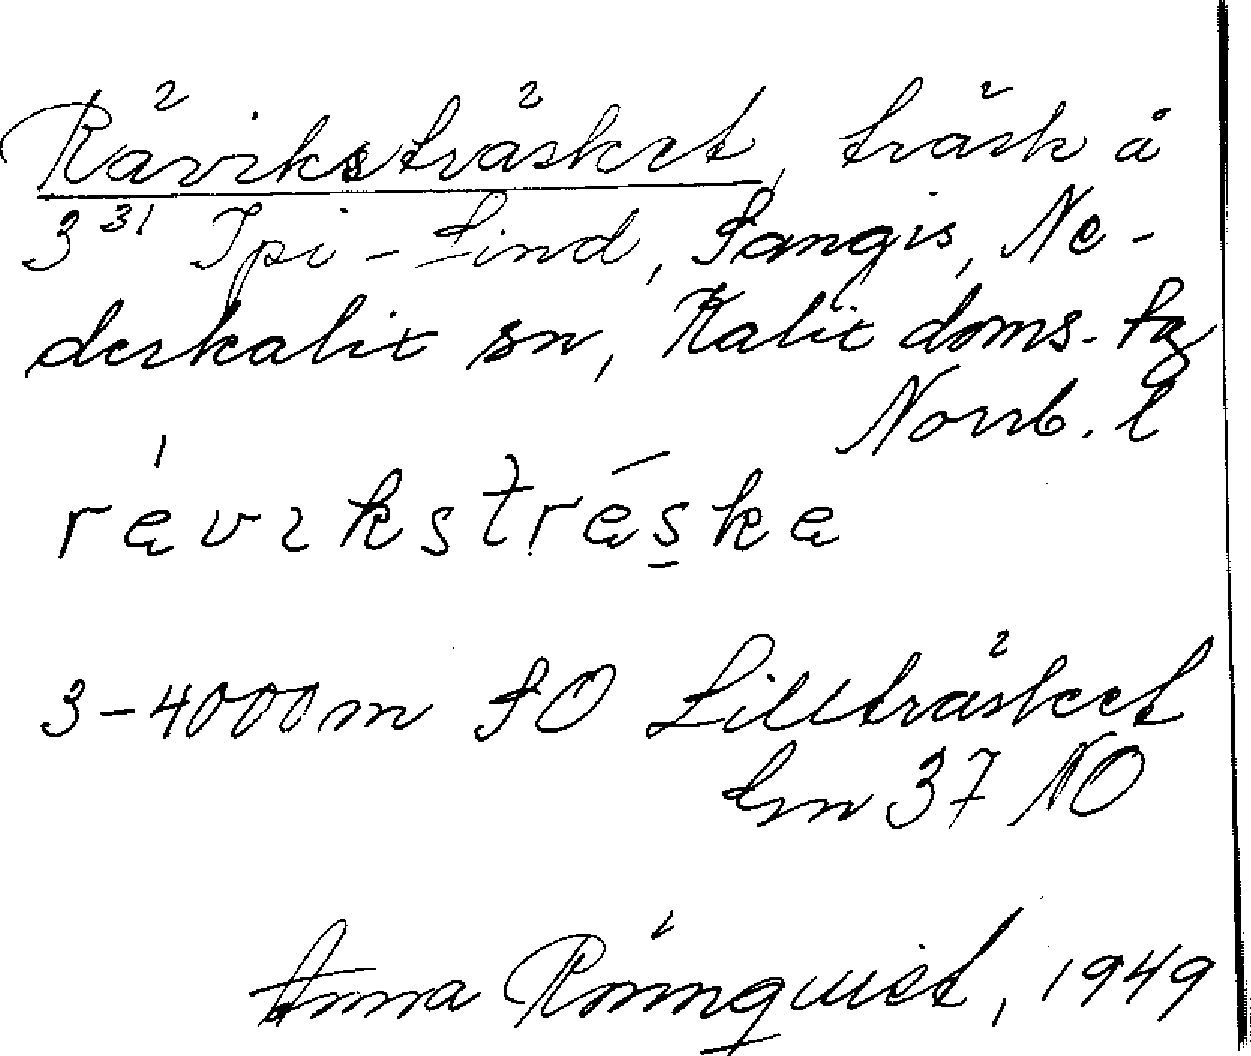 Räviksträsket, träsk å
3³¹ Ipi-Lind, Sangis, Ne-
derkalix sn, Kalix doms. tg
Norrb. l
3-4000m SO Lillträsket
bn 37 NO
Anna Rönnquist, 1949